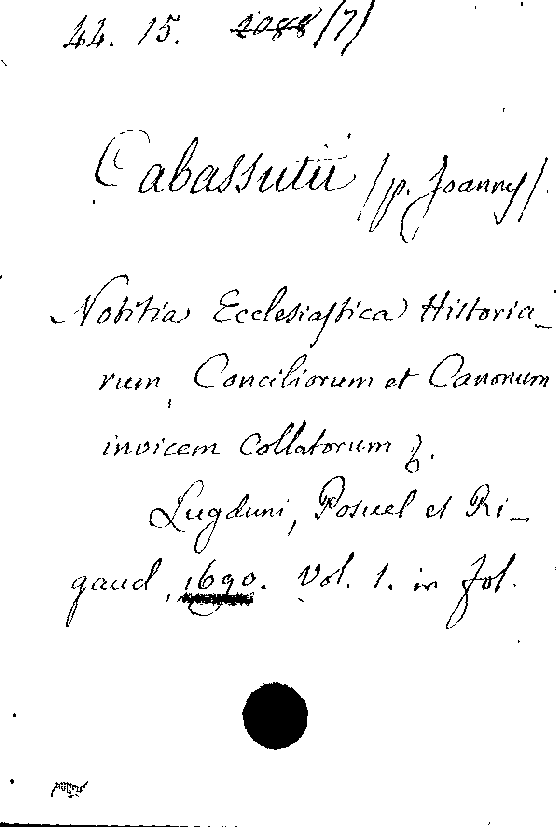 44. 15. 2088 /7/
Cabassutii /p. Joanny/.
Notitia Ecclesiastica Historia_
rum, Conciliorum et Canonum
invicem Collatorum &.
Lugduni, Posuel et Ri_
gaud, 1690. Vol. 1. in fol.